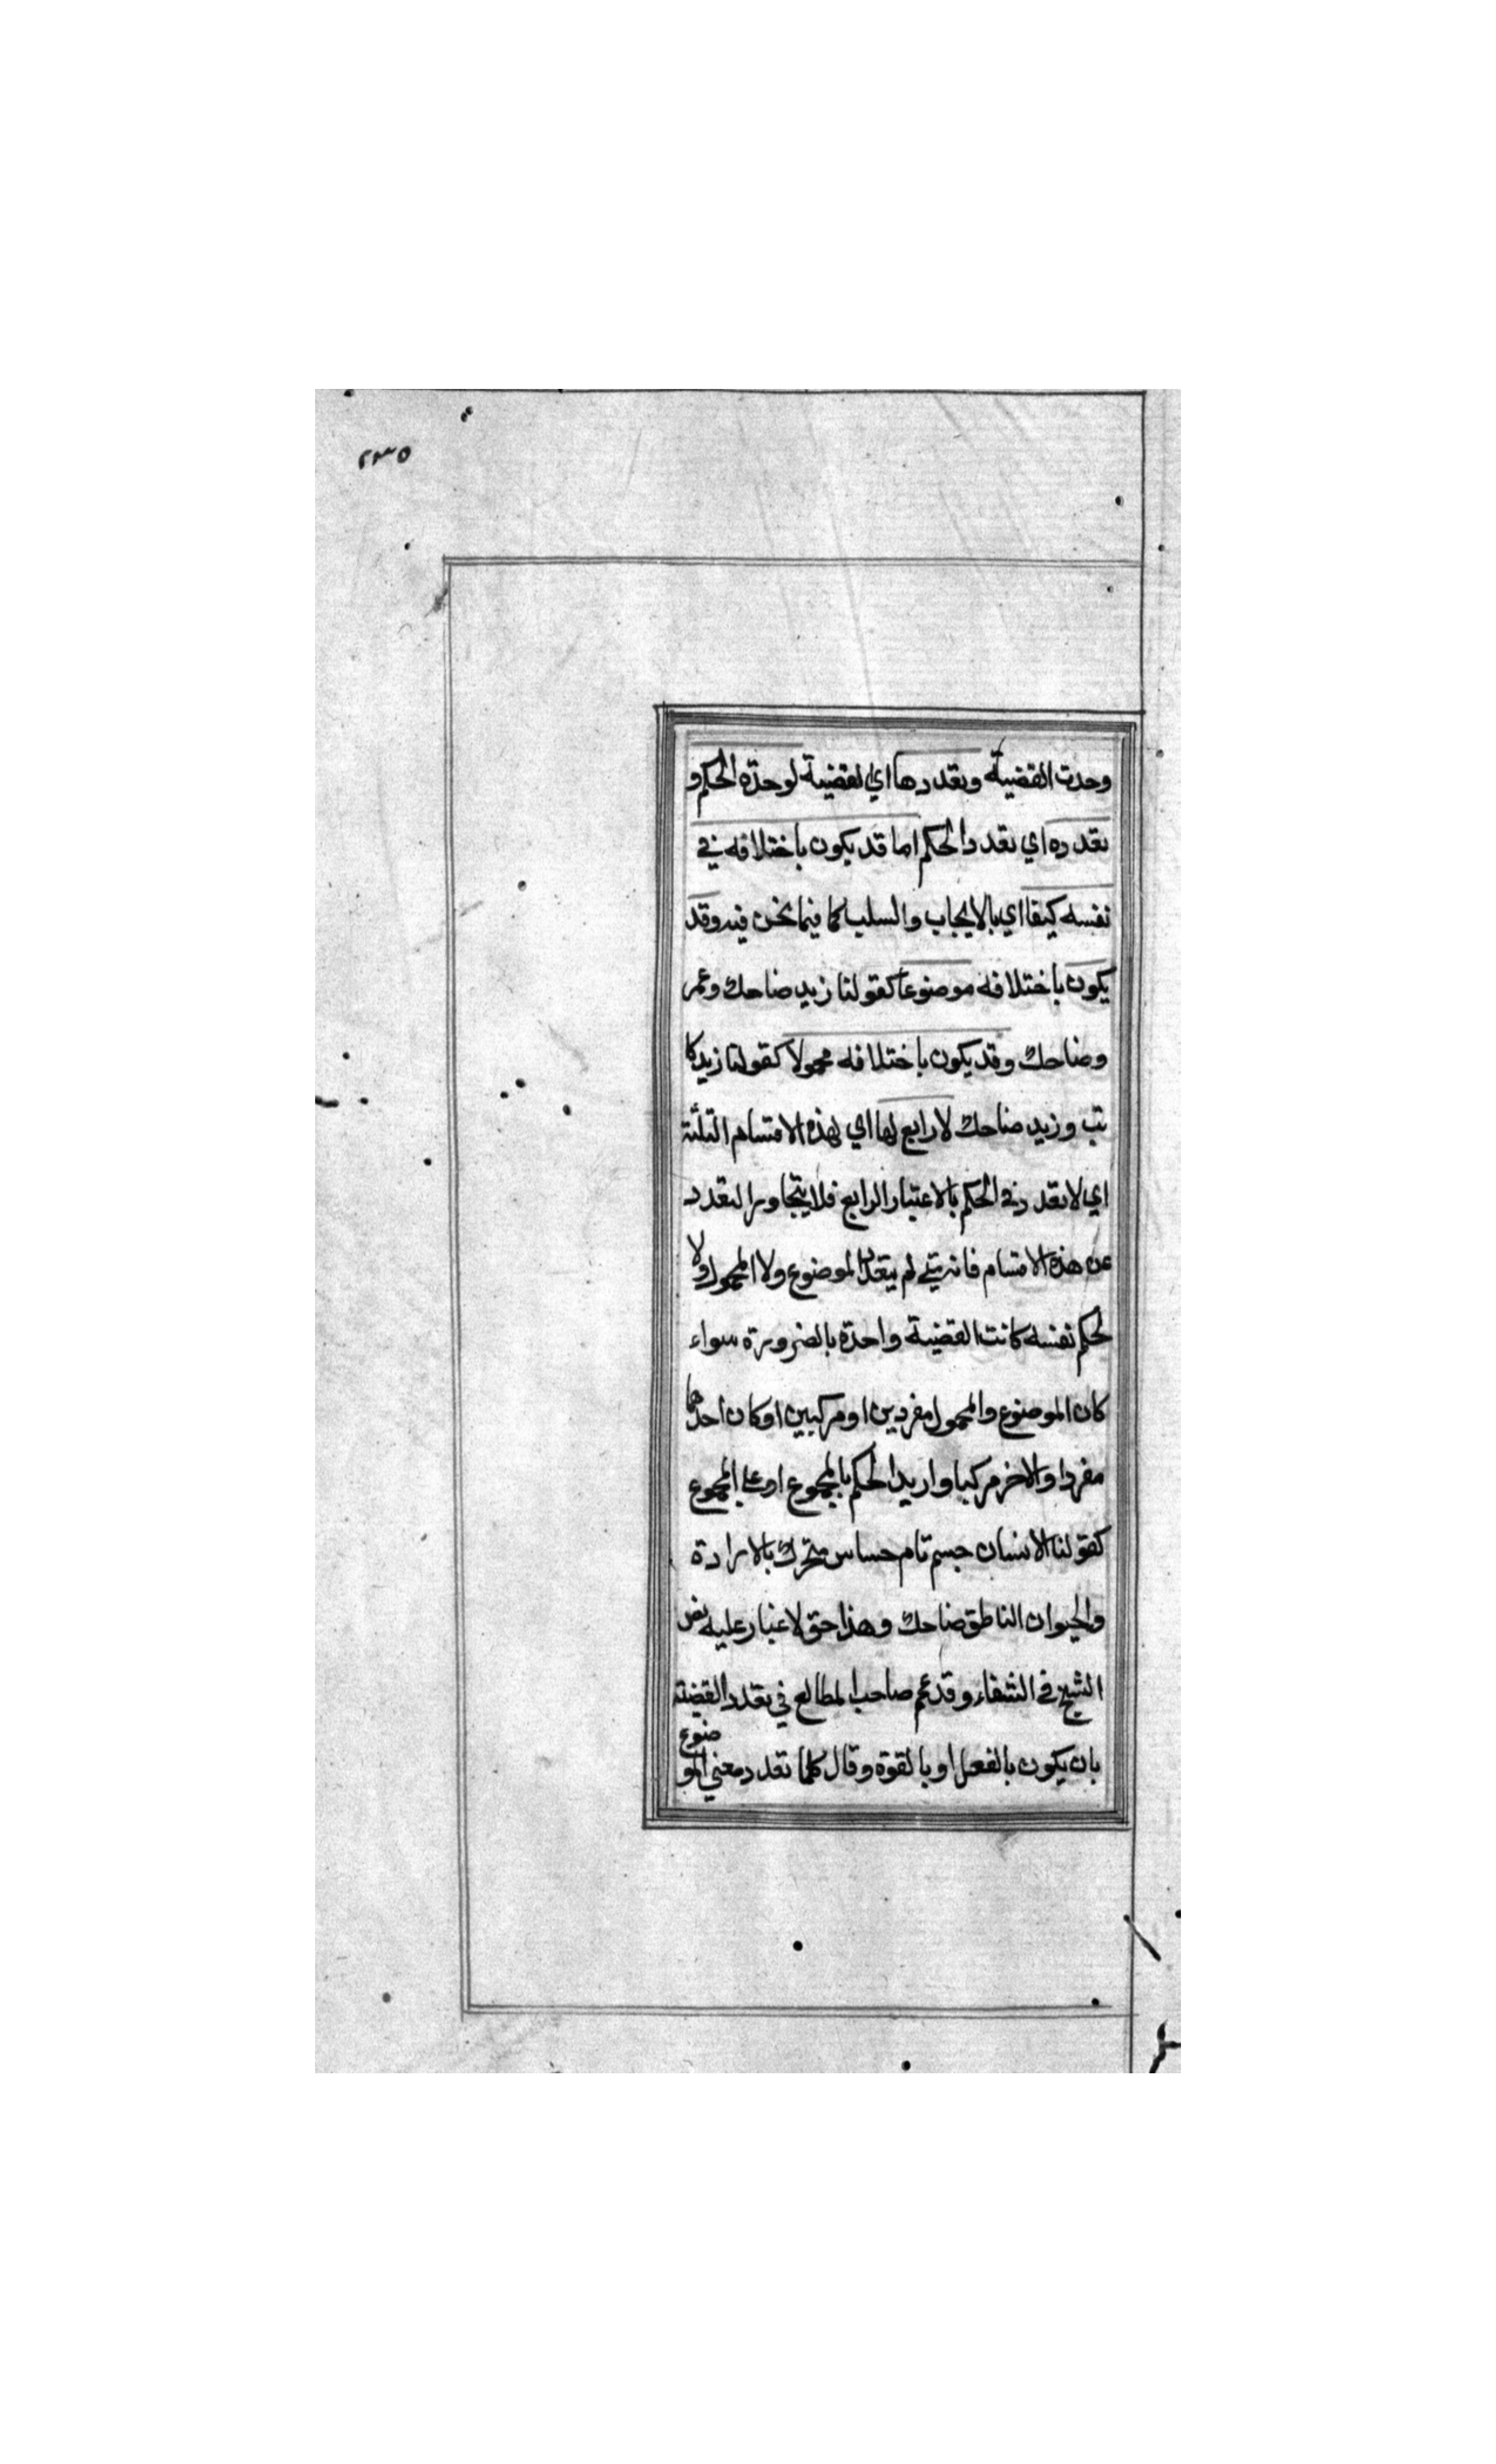 ٢٣٥
وحدت القضية وتعددها اي القضية لوحدة الحكم و
تعدده اي تعدد الحكم اما قد يكون باختلافه في
نفسه كيفا اي بالايجاب والسلب كما فيما نحن فيه وقد
يكون باختلافه موضوعا كقولنا زيد ضاحك وعمر
وضاحك وقد يكون باختلافه محمولا كقولنا زيد كا
تب وزيد ضاحك لا رابع لها اي لهذه الاقسام الثلثة
اي لا تعدد في الحكم بالاعتبار الرابع فلا يتجاوز التعدد
عن هذه الاقسام فانه متى لم يتعدد الموضوع ولا المحمول ولا
لحكم نفسه كانت القضية واحدة بالضرورة سواء
كان الموضوع والمحمول مفردين او مركبين او كان احدهما
مفردا والاخر مركبا واريد الحكم بالمجموع او على المجموع
كقولنا الانسان جسم تام حساس متحرك بالارادة
والحيوان الناطق ضاحك وهذا حق لا غبار عليه نص
الشيخ في الشفاء وقد عم صاحب المطالع في تعدد القضية
بان يكون بالفعل او بالقوة وقال كلما تعدد معنى الموضوع